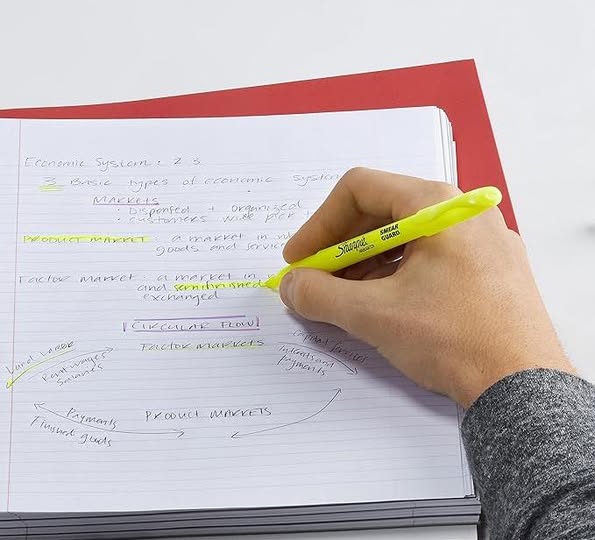 Economic System: 2 3
3 Basic types of economic System
MARKETS
· Dispersed + organized
· customers wide
PRODUCT MARKET: a market in
goods and service
Factor Market: a market in
and semifinished
exchanged
CIRCULAR FLOW
Factor Markets
Land Labor
Rent wages
Salaries
Capital Services
Interest and
payments
Payments
Finished goods
PRODUCT MARKETS
Sharpie
SMEAR
GUARD